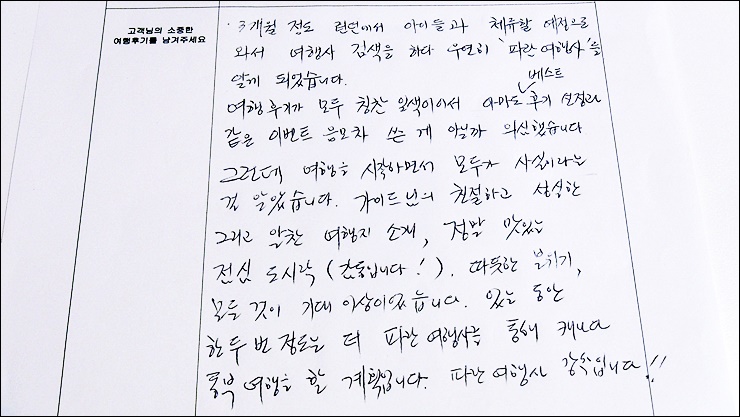 고객님의 소중한
여행후기를 남겨주세요
· 3개월 정도 런던에서 아이들과 체류할 예정으로
와서 여행사 검색을 하다 우연히 '파란 여행사'를
알게 되었습니다.
베스트
여행 후기가 모두 칭찬 일색이어서 아마도 후기 선정과
같은 이벤트 응모차 쓴 게 아닐까 의심했습니다
그런데 여행을 시작하면서 모두가 사실이라는
걸 알았습니다. 가이드님의 친절하고 성실한
그리고 알찬 여행지 소개, 정말 맛있는
점심 도시락 (감동입니다!). 따뜻한 분위기,
모든 것이 기대 이상이었습니다. 있는 동안
한두 번 정도는 더 파란 여행사를 통해 캐나다
동부 여행을 할 계획입니다. 파란 여행사 강추입니다!!